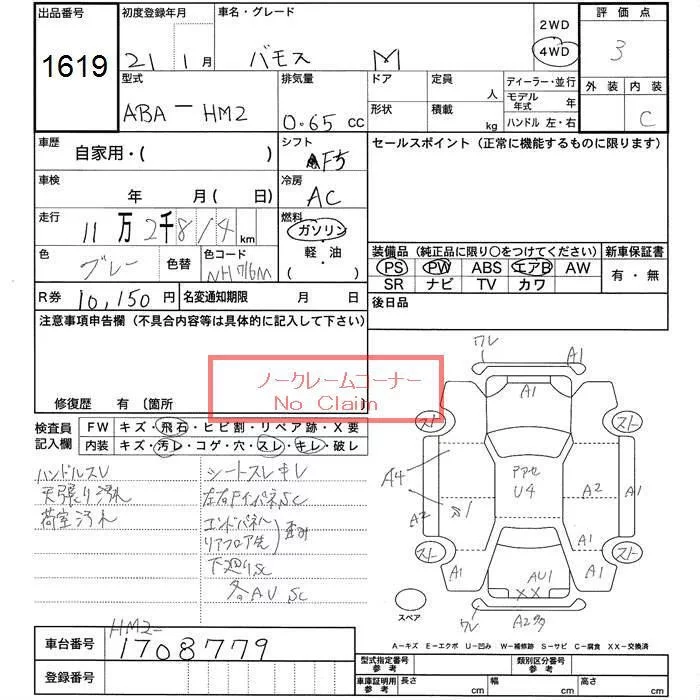 出品番号 初度登録年月 車名・グレード 2WD 評価点
1619 21 1月 バモス M 4WD 3
型式 排気量 ドア 定員 人 ディーラー・並行 外装 内装
ABA-HM2 0.65 CC 形状 積載 kg モデル年式 年 C
ハンドル 左・右
車歴 自家用・( ) シフト F5 セールスポイント (正常に機能するものに限ります)
車検 年 月 ( 日) 冷房 AC
走行 11万2千814 km 燃料 ガソリン
軽・油
( )
色 グレー 色替 色コード NH716M
装備品 (純正品に限り○をつけてください) 新車保証書
PS PW ABS エアB AW 有・無
SR ナビ TV カワ
R券 10,150円 名変通知期限 月 日 後日品
注意事項申告欄 (不具合内容等は具体的に記入して下さい)
ノークレームコーナー
No Claim
修復歴 有 〔箇所
検査員記入欄 FW キズ・飛石・ヒビ割・リペア跡・X要
内装 キズ・汚レ・コゲ・穴・スレ・キレ・破レ
ハンドルスレ シートスレキレ
天張り汚れ 左右Fインパネ SC
荷室汚れ エンドパネル
リアフロア先 歪み
下廻りSC
各AU SC
ワレ A1
A1
スト スト
A4 アアセ
U4
A2 A2
S1
スト スト
A1 AU1 A1 A1
XX
スペア ワレ A2多
A-キズ E-エクボ U-凹み W-補修跡 S-サビ C-腐食 XX-交換済
車台番号 HM2-
1708779
登録番号
型式指定番号 参考 類別区分番号 参考
車庫証明用 参考 長さ cm 幅 cm 高さ cm